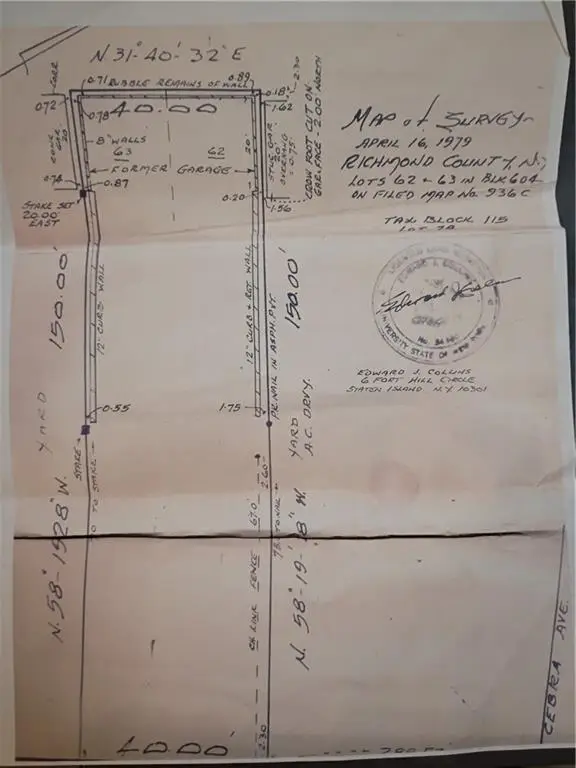 N 31° 40' 32" E
0.71 RUBBLE REMAINS OF WALL 0.89
0.72
40.00
0.18'
1.62
2.30
0.78
8" WALLS
63 62
FORMER GARAGE
20'
CONC GAR
20
STUC GAR
20'
OVERHANG
= 0.75'
CROW FOOT CUT ON
GAR. FACE 2.00 NORTH
0.74
0.87
0.20
1.56
STAKE SET
20.00'
EAST
MAP of SURVEY
APRIL 16, 1979
RICHMOND COUNTY, N.Y.
LOTS 62 & 63 IN BLK 604
ON FILED MAP No. 936 C
TAX BLOCK 115
LOT 78
EDWARD J. COLLINS
6 FORT HILL CIRCLE
STATEN ISLAND N.Y. 10301
150.00'
12" CURB WALL
12" CURB & RET WALL
P.K. NAIL IN ASPH. PVT.
150.00'
0.55
1.75
YARD
STAKE
TO STAKE
YARD
A.C. DRVY.
N. 58°-19'28" W.
CH LINK FENCE 67.0'
2.60
N. 58°-19'-28" W.
CEBRA AVE.
40.00'
2.30